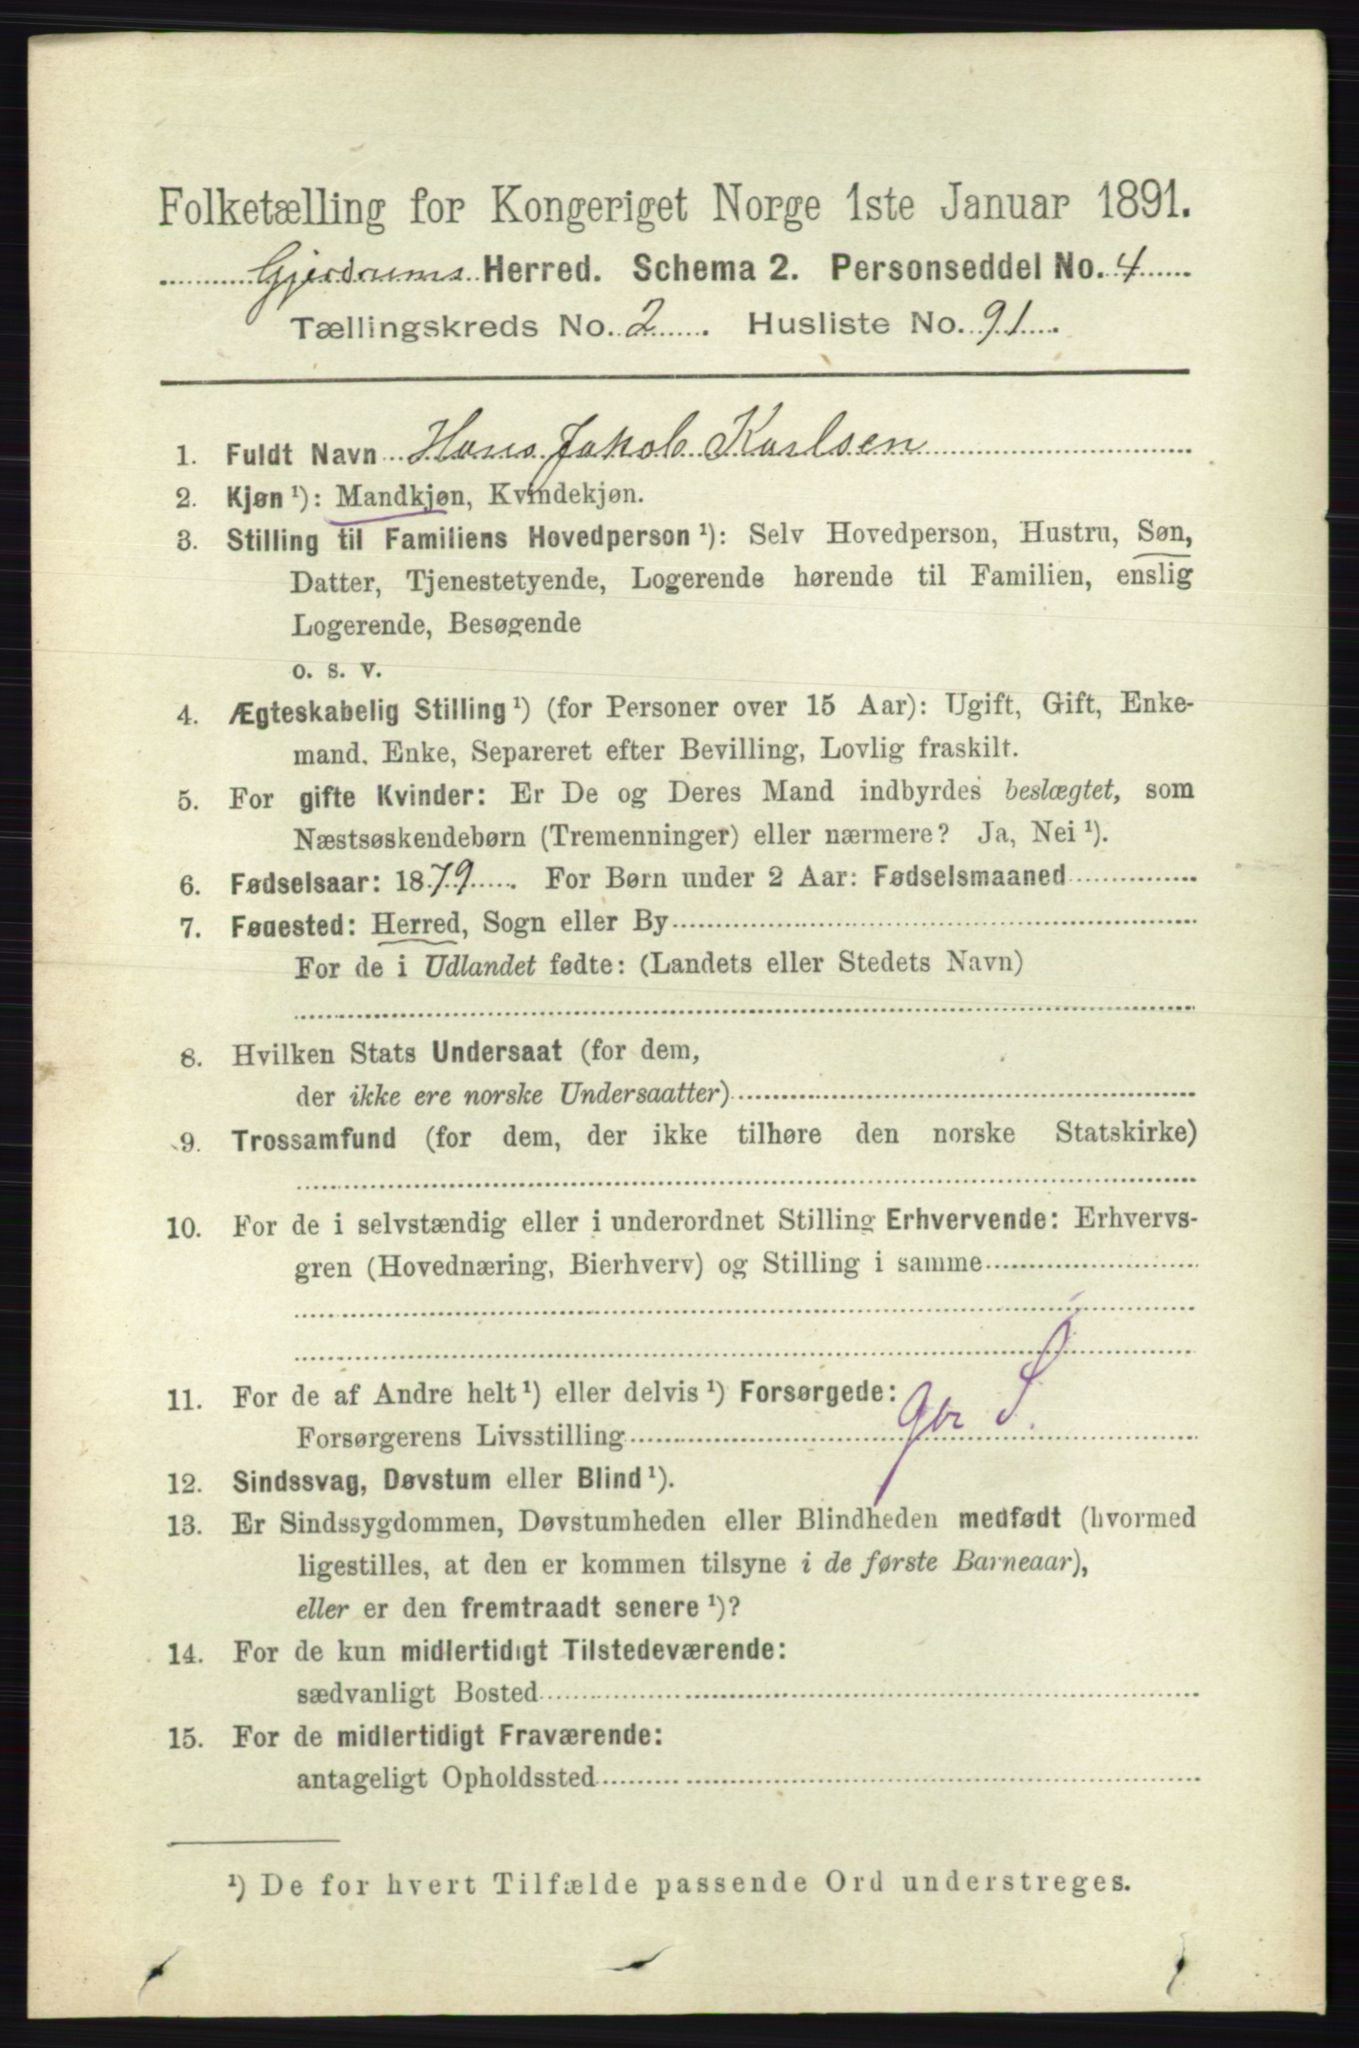 Folketælling for Kongeriget Norge 1ste Januar 1891.
Gjerdrums Herred. Schema 2. Personseddel No. 4
Tællingskreds No. 2 Husliste No. 91
1. Fuldt Navn Hans Jakob Karlsen
2. Kjøn ¹): Mandkjøn, Kvindekjøn.
3. Stilling til Familiens Hovedperson ¹): Selv Hovedperson, Hustru, Søn,
Datter, Tjenestetyende, Logerende hørende til Familien, enslig
Logerende, Besøgende
o. s. v.
4. Ægteskabelig Stilling ¹) (for Personer over 15 Aar): Ugift, Gift, Enke-
mand, Enke, Separeret efter Bevilling, Lovlig fraskilt.
5. For gifte Kvinder: Er De og Deres Mand indbyrdes beslægtet, som
Næstsøskendebørn (Tremenninger) eller nærmere? Ja, Nei ¹).
6. Fødselsaar: 1879. For Børn under 2 Aar: Fødselsmaaned
7. Fødested: Herred, Sogn eller By
For de i Udlandet fødte: (Landets eller Stedets Navn)
8. Hvilken Stats Undersaat (for dem,
der ikke ere norske Undersaatter)
9. Trossamfund (for dem, der ikke tilhøre den norske Statskirke)
10. For de i selvstændig eller i underordnet Stilling Erhvervende: Erhvervs-
gren (Hovednæring, Bierhverv) og Stilling i samme
11. For de af Andre helt ¹) eller delvis ¹) Forsørgede:
Forsørgerens Livsstilling
12. Sindssvag, Døvstum eller Blind ¹).
13. Er Sindssygdommen, Døvstumheden eller Blindheden medfødt (hvormed
ligestilles, at den er kommen tilsyne i de første Barneaar),
eller er den fremtraadt senere ¹)?
14. For de kun midlertidigt Tilstedeværende:
sædvanligt Bosted
15. For de midlertidigt Fraværende:
antageligt Opholdssted
¹) De for hvert Tilfælde passende Ord understreges.